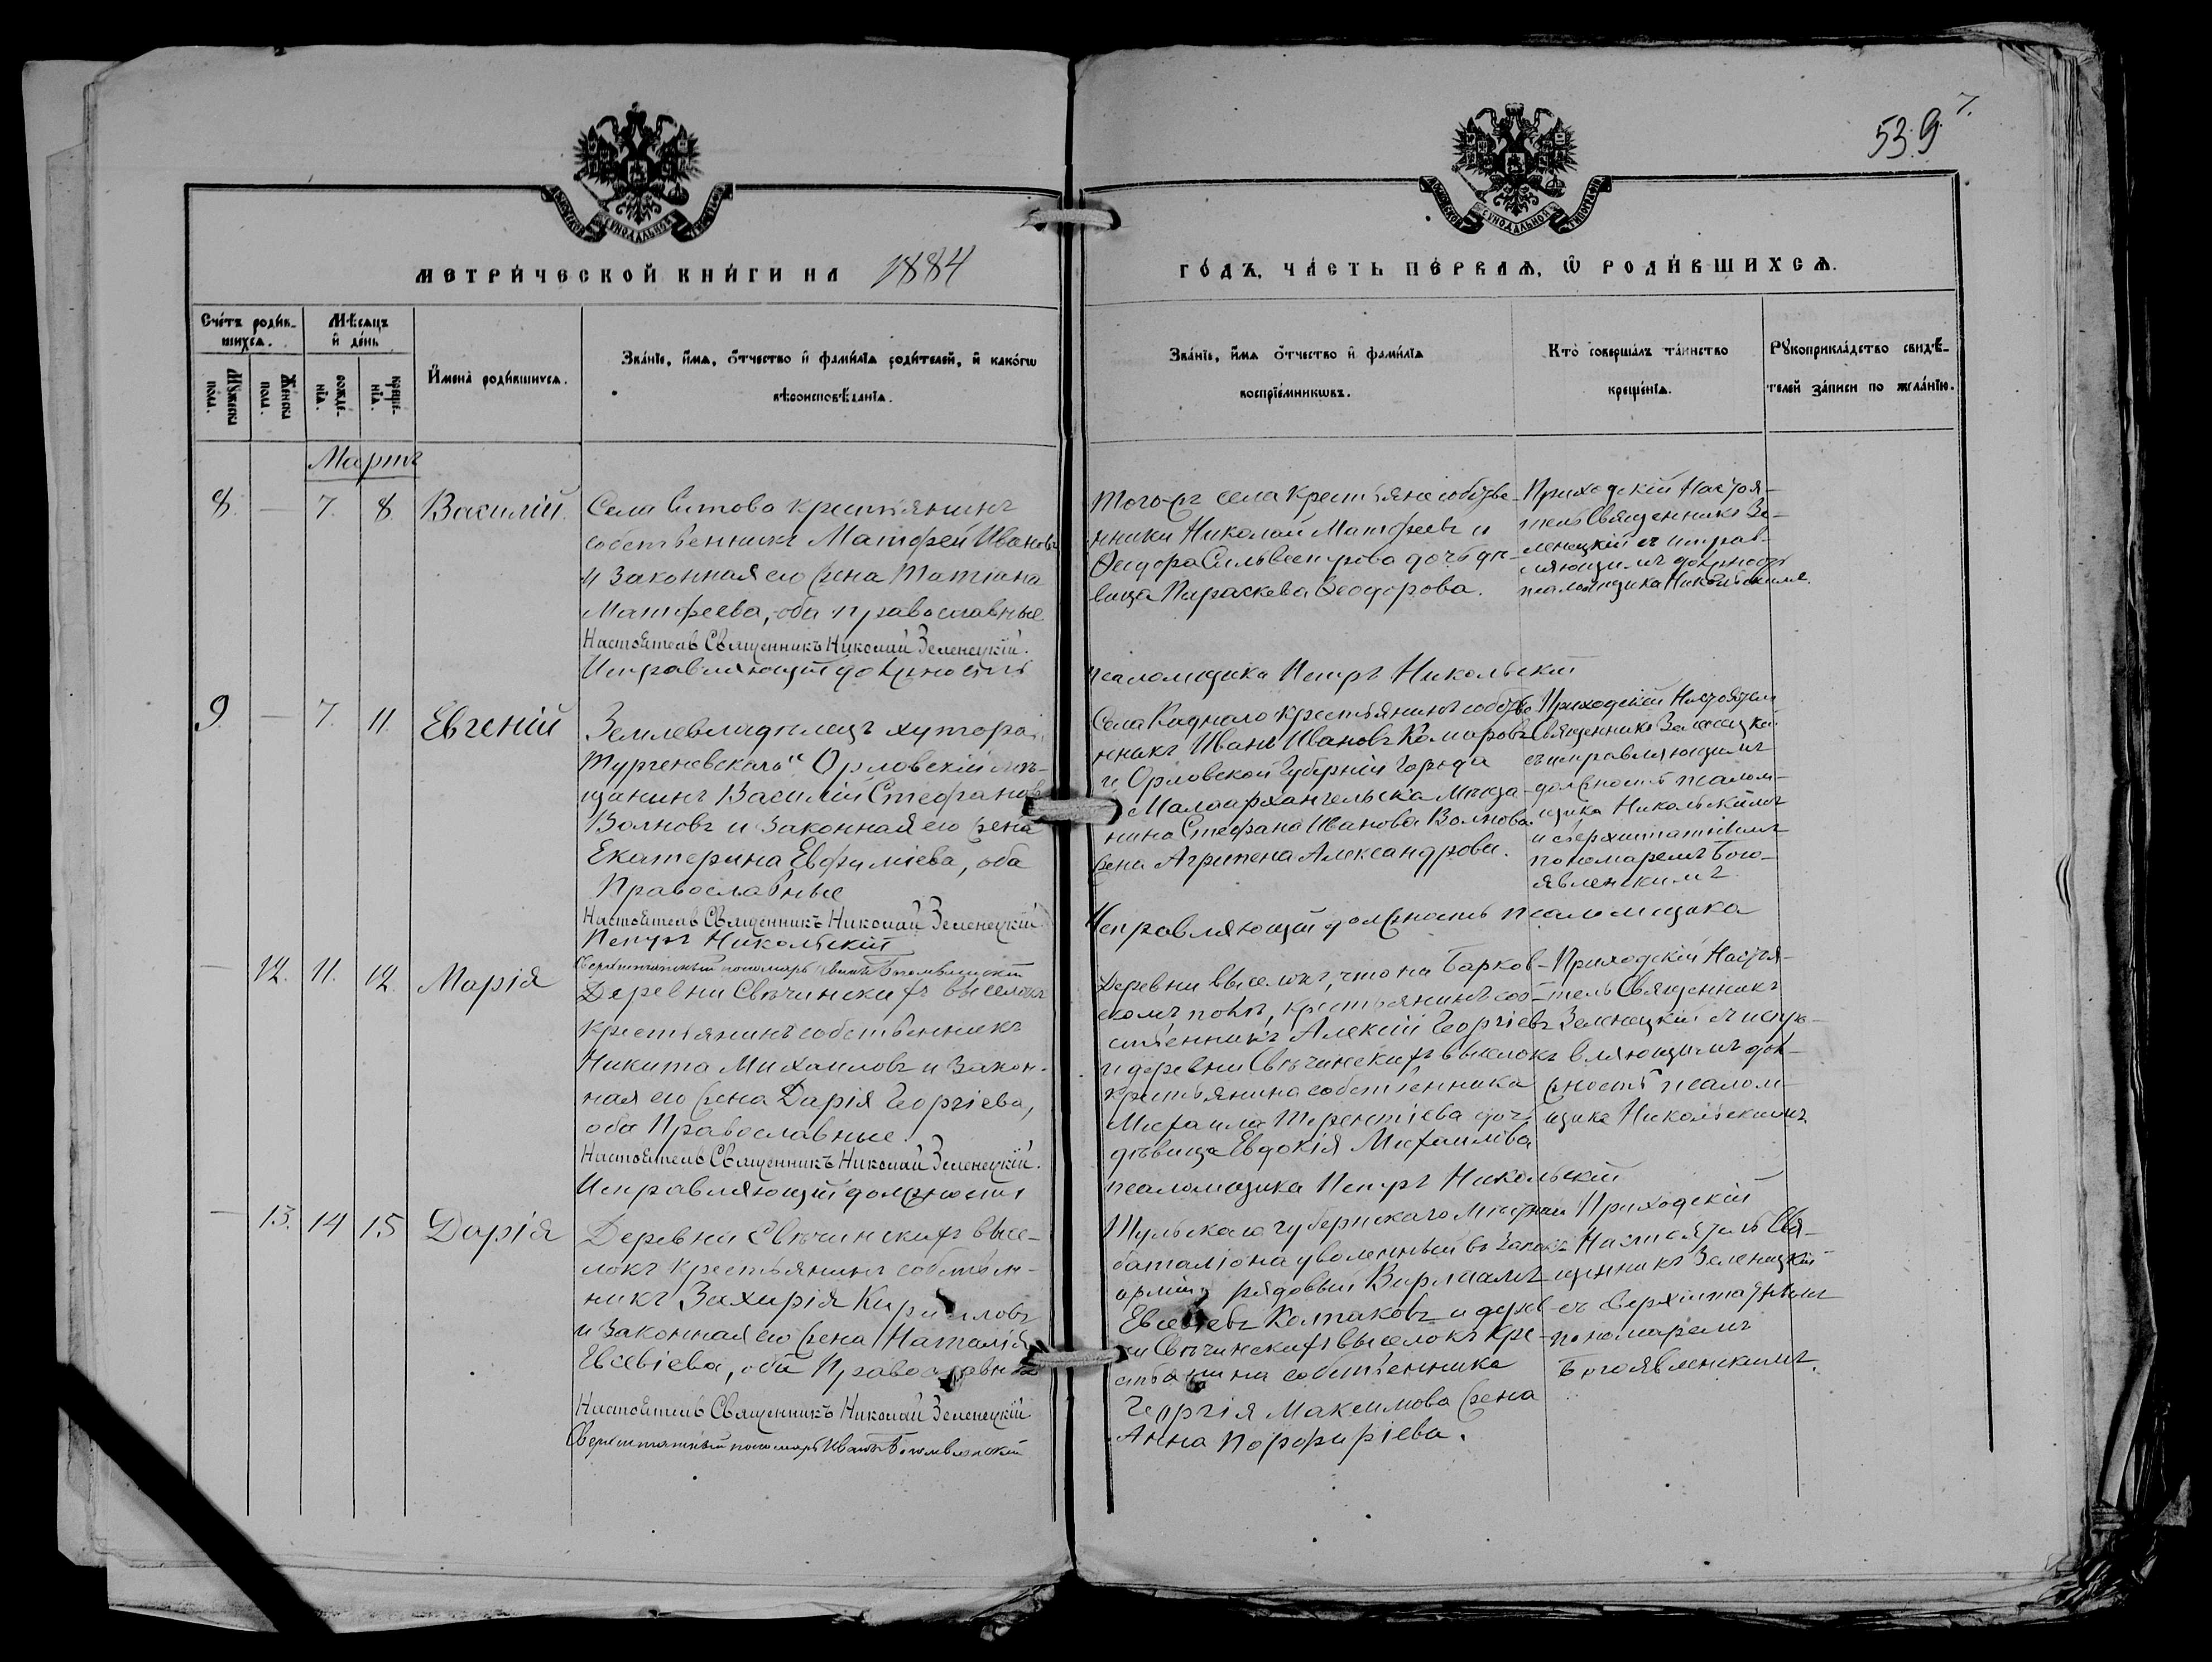 53.9.
7.
МОСКОВСКОЙ СУНОДАЛЬНОЙ ТИПОГРАФІИ
МОСКОВСКОЙ СУНОДАЛЬНОЙ ТИПОГРАФІИ
МЕТРИ́ЧЕСКОЙ КНИ́ГИ НА 1884
ГО́ДЪ, ЧА́СТЬ ПЕ́РВАѦ, Ѿ РОДИ́ВШИХСѦ.
Сче́тъ роди́в-
шихсѧ.
Мꙋжеска пола.
Же́нска пола.
Мѣ́сѧцъ
и҆ де́нь
рожде́-
нїѧ.
креще́-
нїѧ.
И҆мена̀ роди́вшихсѧ.
Зва́нїе, и҆́мѧ, ѻ҆́тчество и҆ фами́лїѧ роди́телей, и҆ како́гѡ
вѣроисповѣ́данїѧ.
Зва́нїе, и҆́мѧ ѻ҆́тчество и҆ фами́лїѧ
воспрїе́мникѡвъ.
Кто̀ соверша́лъ та́инство
креще́нїѧ.
Рꙋкоприкла́дство свидѣ́-
телей за́писи по жела́нїю.
Мартъ
8. — 7. 8. Василій.
Села Ситова крестьянинъ
собственникъ Матфей Ивановъ
и законная его жена Татіана
Матфеева, оба православные
Настоятель Священникъ Николай Зеленецкій.
Исправляющій должность
Того-же села крестьяне собстве-
нники Николай Матфеевъ и
Ѳеодора Сильвестрова дочь дѣ-
вица Параскева Ѳеодорова.
псаломщика Петръ Никольскій
Приходскій Настоя-
тель Священникъ Зе-
ленецкій съ исправ-
ляющимъ должность
псаломщика Никольскимъ.
9. — 7. 11. Евгеній
Землевладѣлецъ хутора
Тургеневскаго" Орловскій мѣ-
щанинъ Василій Стефановъ
Волковъ и законная его жена
Екатерина Евфиміева, оба
Православные
Настоятель Священникъ Николай Зеленецкій.
Петръ Никольскій
Сверхштатный пономарь Иванъ Богоявленскій
Села Каднаго крестьянинъ собстве
нникъ Иванъ Ивановъ Комаровъ
и Орловской Губерніи Города
Малоархангельска Мѣща-
нина Стефана Иванова Волкова
жена Агрипена Александрова.
Исправляющій должность псаломщика
Приходскій Настоятель
Священникъ Зеленецкій
съ исправляющимъ
должность псалом-
щика Никольскимъ
и сверхштатнымъ
пономаремъ Бого-
явленскимъ.
— 12. 11. 12. Марія
Деревни Свѣчинскихъ выселокъ
крестьянинъ собственникъ
Никита Михаиловъ и закон-
ная его жена Дарія Георгіева,
оба Православные.
Настоятель Священникъ Николай Зеленецкій.
Исправляющій должность
Деревни выселокъ, что на Барков-
скомъ полѣ, крестьянинъ соб-
ственникъ Алексій Георгіевъ
и деревни Свѣчинскихъ выселокъ
крестьянина собственника
Михаила Терентіева дочь
дѣвица Евдокія Михаилова
псаломщика Петръ Никольскій
Приходскій Настоя-
тель Священникъ
Зеленецкій съ испра-
вляющимъ дол-
жность псалом-
щика Никольскимъ
— 13. 14 15 Дарія
Деревни Свѣчинскихъ высе-
локъ крестьянинъ собствен-
никъ Захарія Кирилловъ
и законная его жена Наталія
Евсевіева, оба Православные
Настоятель Священникъ Николай Зеленецкій.
Сверхштатный пономарь Иванъ Богоявленскій
Тульскаго губернскаго мѣстнаго
баталіона уволенный въ запасъ
арміи рядовый Варлаамъ
Евсевіевъ Колпаковъ и дерев
ни Свѣчинскихъ выселокъ кре-
стьянина собственника
Георгія Максимова жена
Анна Порфиріева.
Приходскій
Настоятель Свя-
щенникъ Зеленецкій
съ сверхштатнымъ
пономаремъ
Богоявленскимъ.